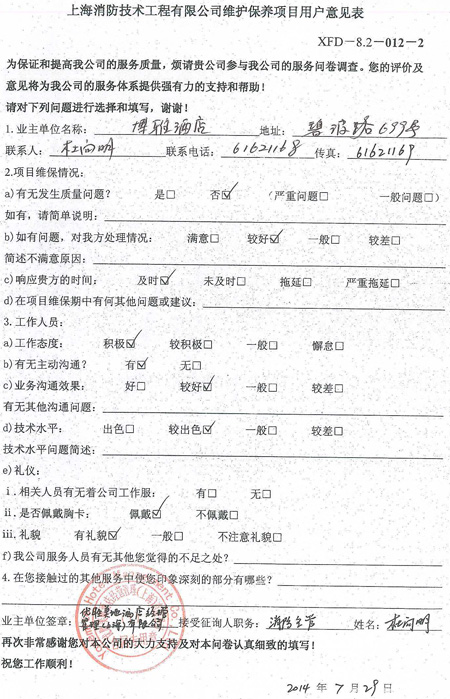 上海消防技术工程有限公司维护保养项目用户意见表
XFD-8.2-012-2
为保证和提高我公司的服务质量，烦请贵公司参与我公司的服务问卷调查。您的评价及
意见将为我公司的服务体系提供强有力的支持和帮助！
请对下列问题进行选择和填写，谢谢！
1.业主单位名称：博雅酒店 地址：碧波路699号
联系人：杜向明 联系电话：61621168 传真：61621169
2.项目维保情况：
a)有无发生质量问题？ 是□ 否☑ （严重问题□ 一般问题□）
如有，请简单说明：
b)如有问题，对我方处理情况： 满意□ 较好☑ 一般□ 较差□
简述不满意原因：
c)响应贵方的时间： 及时☑ 未及时□ 拖延□ 严重拖延□
d)在项目维保期中有何其他问题或建议：
3.工作人员：
a)工作态度： 积极☑ 较积极□ 一般□ 懈怠□
b)有无主动沟通？ 有☑ 无□
c)业务沟通效果： 好□ 较好☑ 一般□ 较差□
有无其他沟通问题：
d)技术水平： 出色□ 较出色☑ 一般□ 较差□
技术水平问题简述：
e)礼仪：
i.相关人员有无着公司工作服： 有□ 无□
ii.是否佩戴胸卡： 佩戴☑ 不佩戴□
iii.礼貌 有礼貌☑ 一般□ 不注意礼貌□
f)我公司服务人员有无其他您觉得的不足之处？
4.在您接触过的其他服务中使您印象深刻的部分有哪些？
业主单位签章： 酒店 管理(上海)有限公司 接受征询人职务：消防主管 姓名：杜向明
再次非常感谢您对本公司的大力支持及对本问卷认真细致的填写！
祝您工作顺利！
2014年7月29日